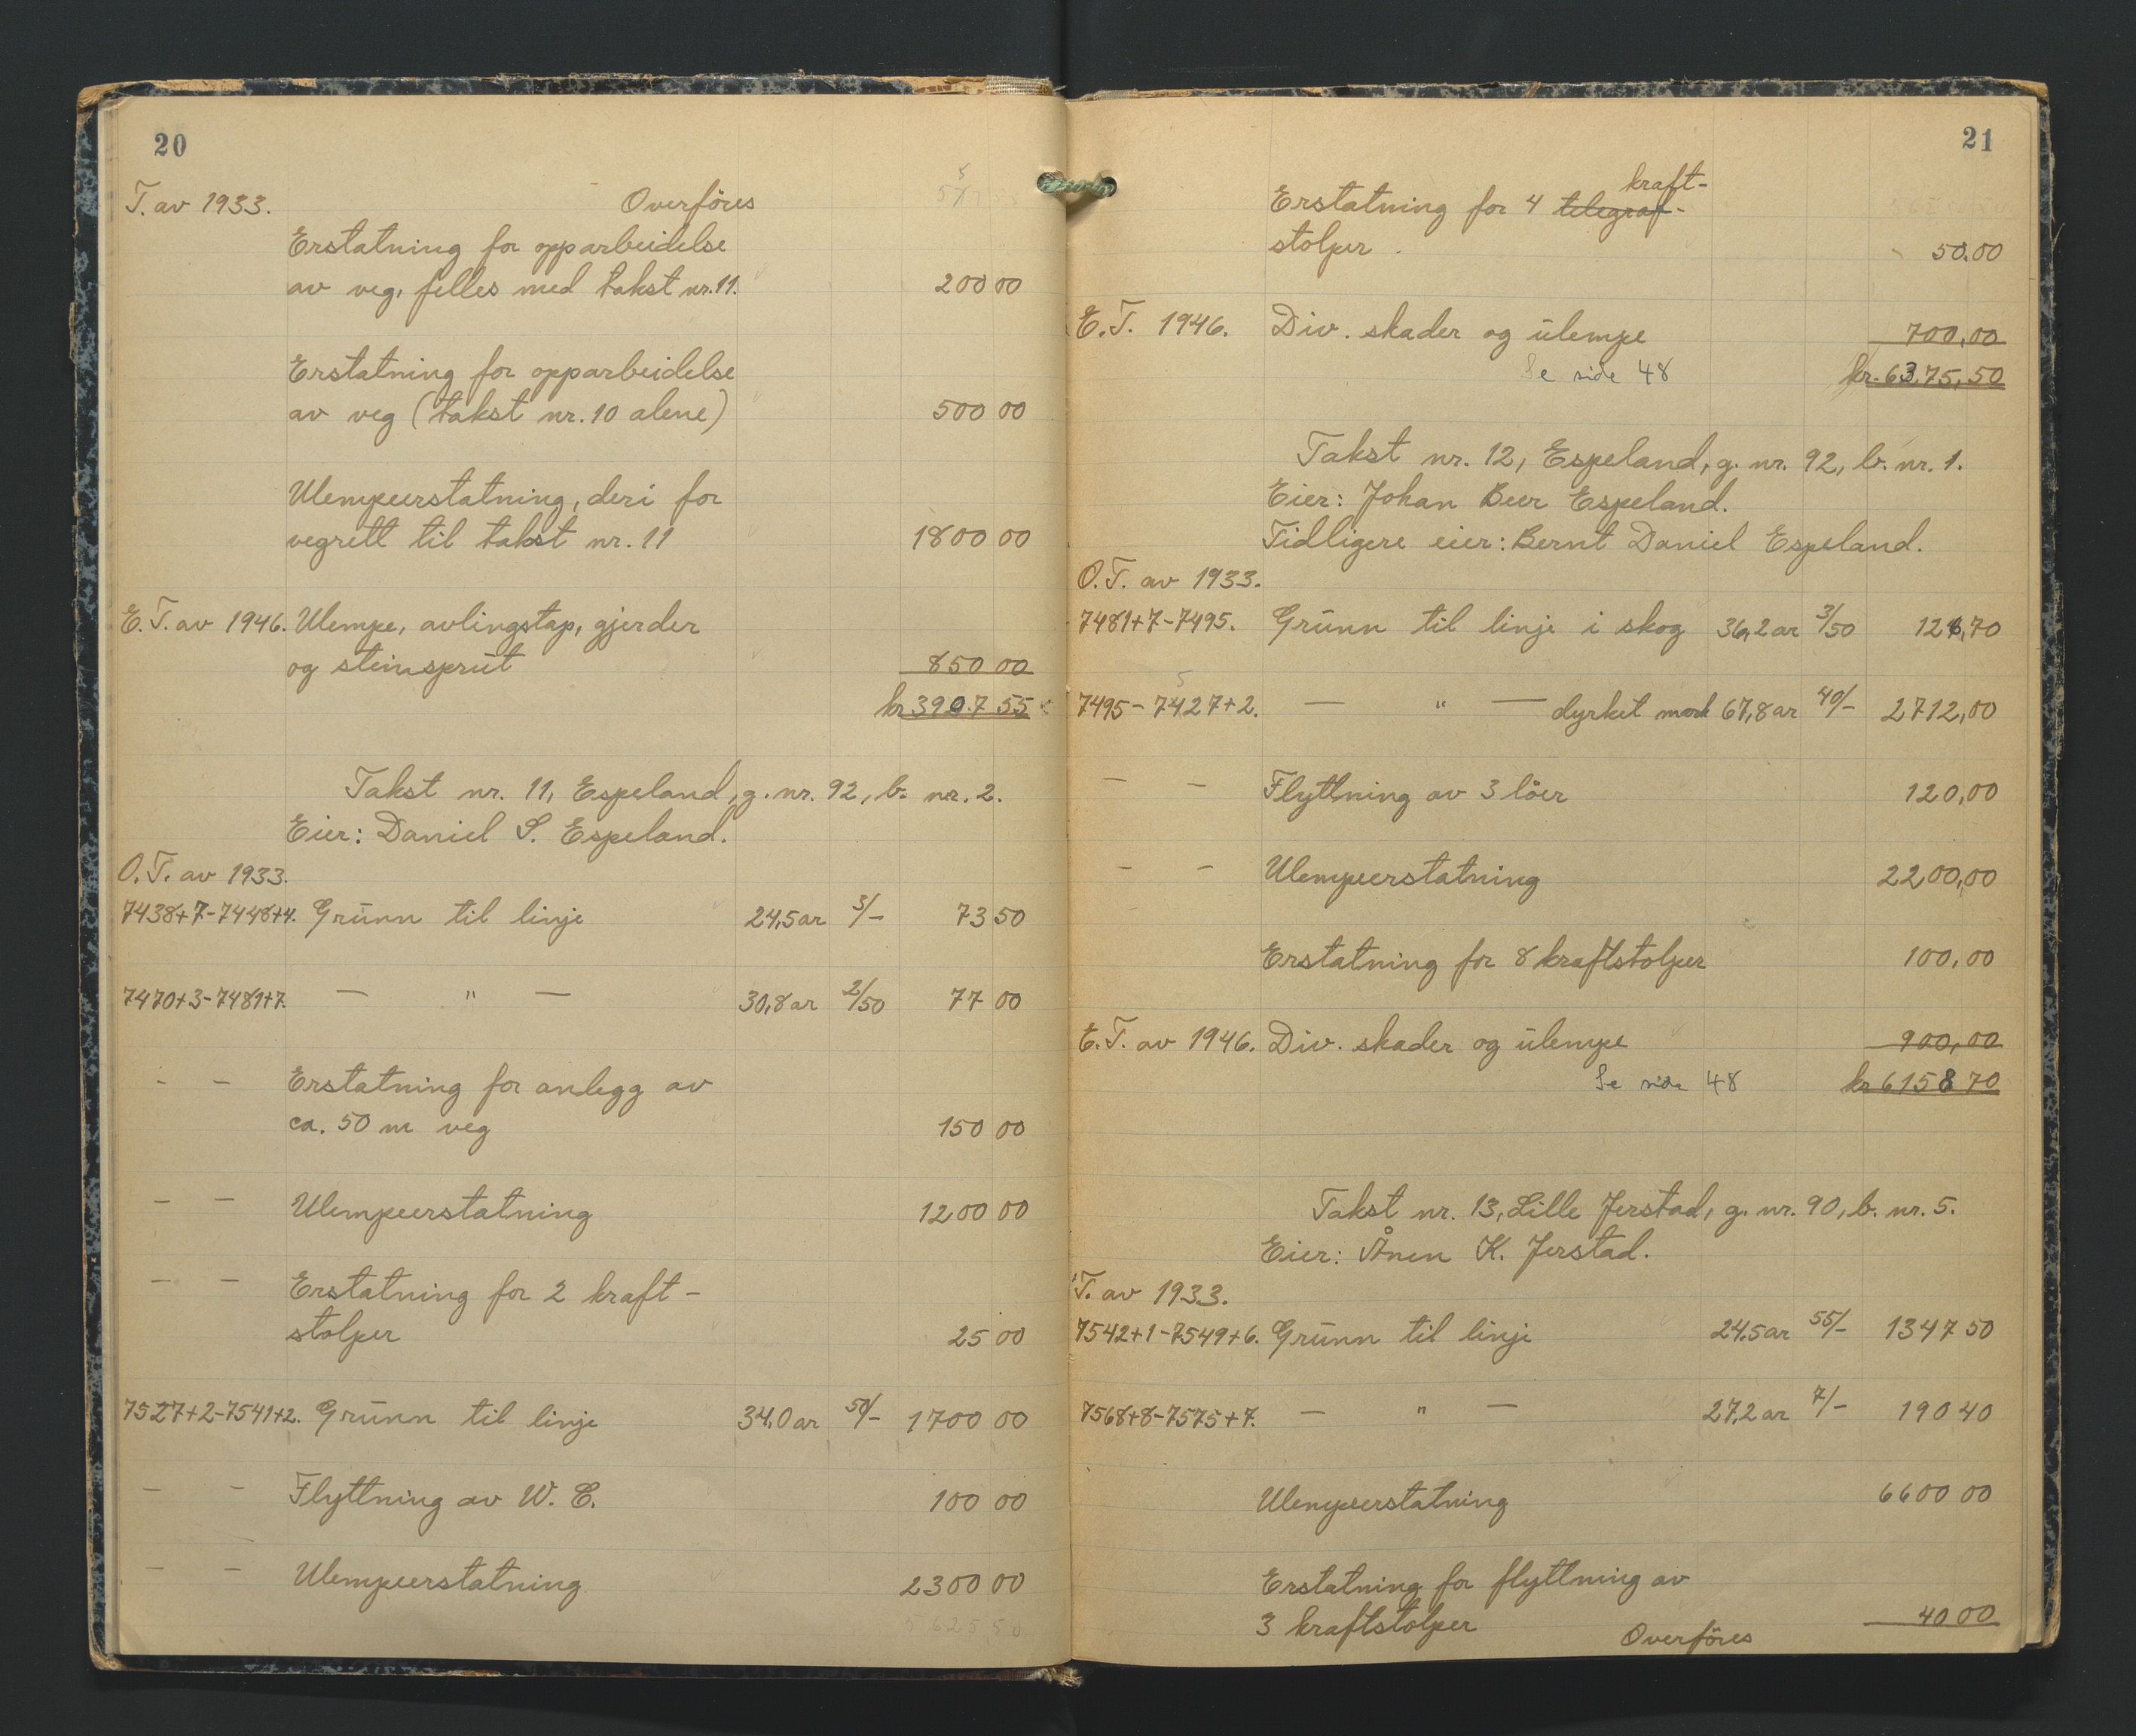 20
T. av 1933. Overföres
Erstatning for opparbeidelse
av veg, felles med takst nr. 11. 200 00
Erstatning for opparbeidelse
av veg (takst nr. 10 alene) 500 00
Ulempeerstatning, deri for
vegrett til takst nr. 11 1800 00
E. T. av 1946. Ulempe, avlingstap, gjerder
og steinsprut 850 00
kr 3907 55
Takst nr. 11, Espeland, g. nr. 92, b. nr. 2.
Eier: Daniel S. Espeland.
O. T. av 1933.
7438+7-7448+4. Grunn til linje 24,5 ar 3/- 73 50
7470+3-7481+7. — " — 30,8 ar 2/50 77 00
- - Erstatning for anlegg av
ca. 50 m veg 150 00
- - Ulempeerstatning 1200 00
- - Erstatning for 2 kraft-
stolper 25 00
7527+2-7541+2. Grunn til linje 34,0 ar 50/- 1700 00
- - Flyttning av W. C. 100 00
- - Ulempeerstatning 2300 00
5625 50
21
kraft-
Erstatning for 4 telegraf-
stolper. 50.00
E. T. 1946. Div. skader og ulempe 700,00
Se side 48 kr. 6375,50
Takst nr. 12, Espeland, g. nr. 92, b. nr. 1.
Eier: Johan Beer Espeland.
Tidligere eier: Bernt Daniel Espeland.
O. T. av 1933.
7481+7-7495. Grunn til linje i skog 36,2 ar 3/50 126,70
5
7495-7427+2. — " — dyrket mark 67,8 ar 40/- 2712,00
- - Flyttning av 3 löer 120,00
- - Ulempeerstatning 2200,00
Erstatning for 8 kraftstolper 100,00
E. T. av 1946. Div. skader og ulempe 900,00
Se side 48 kr 6158 70
Takst nr. 13, Lille Jerstad, g. nr. 90, b. nr. 5.
Eier: Ånen K. Jerstad.
T. av 1933.
7542+1-7549+6. Grunn til linje 24,5 ar 55/- 1347 50
7568+8-7575+7. — " — 27,2 ar 7/- 190 40
Ulempeerstatning 6600 00
Erstatning for flyttning av
3 kraftstolper 40 00
Overföres